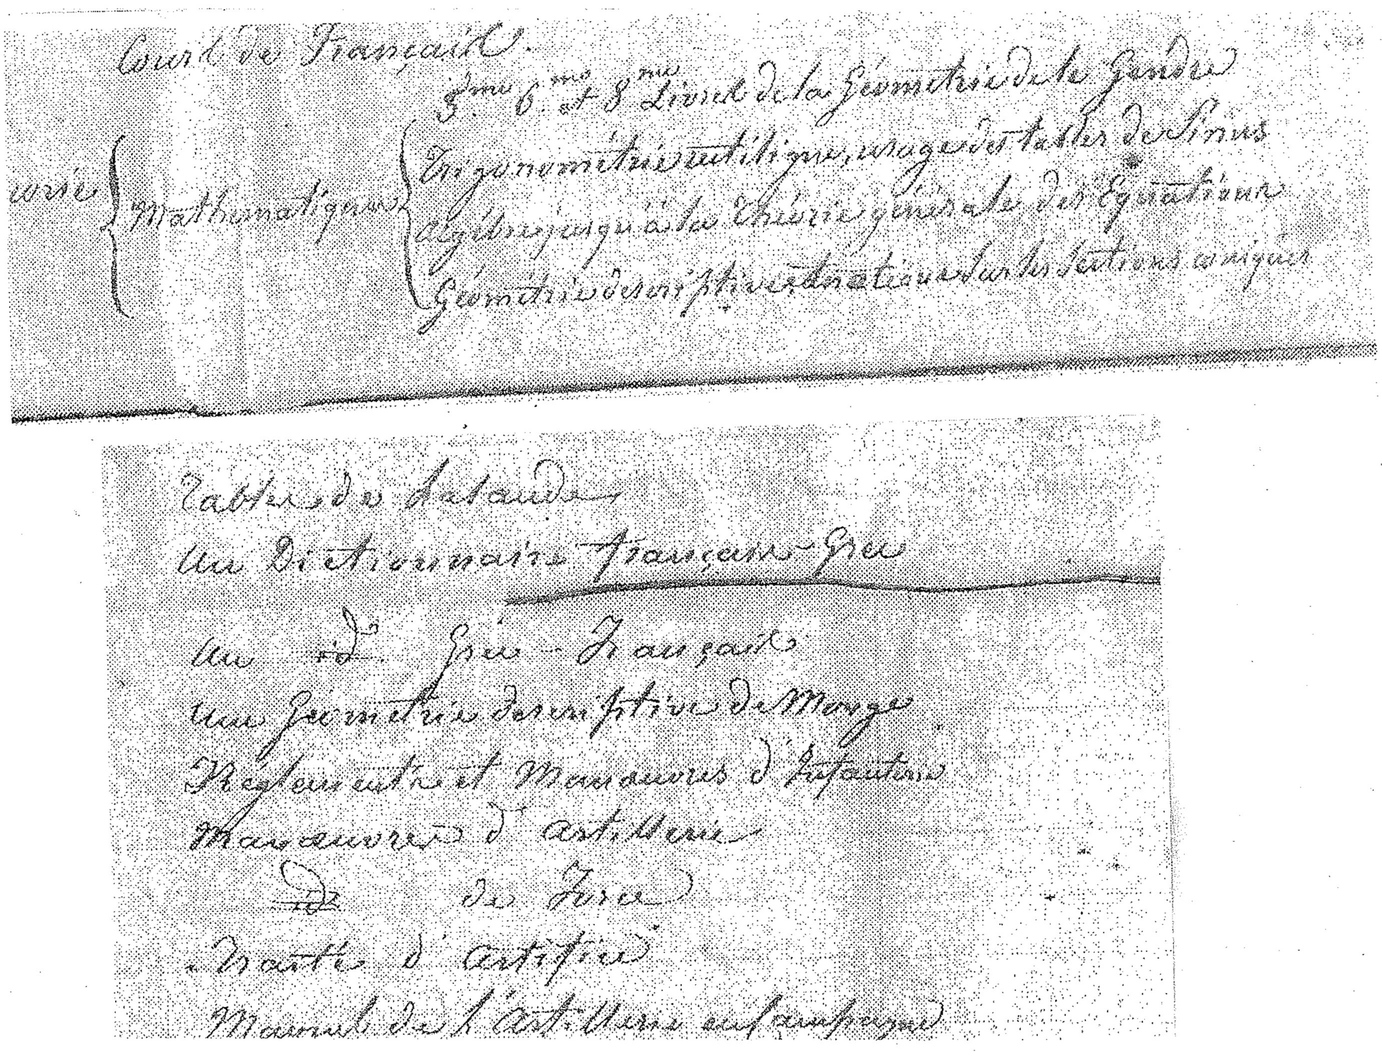 Cours de Français.
5me 6me et 8me Livres de la Géométrie de le Gendre
Trigonométrie rectiligne, usage des tables de Sinus
orie { Mathématiques {
Algèbre jusqu'à la Théorie générale des Équations
Géométrie descriptive et notions sur les sections coniques
Tables de Lalande
Un Dictionnaire français-Grec
Un id. Grec-Français
Une Géométrie descriptive de Monge
Règlements et Manœuvres d'Infanterie
Manœuvres d'Artillerie
id. de Force
Traité d'Artifice
Manuel de l'Artillerie en Campagne